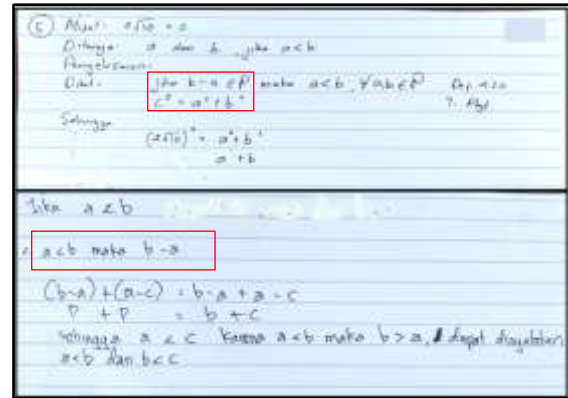 5 Misal: 2√10 = c
Ditanya: a dan b, jika a<b
Penyelesaian:
Dikt: jika b-a ∈ P maka a<b, ∀ a,b ∈ P
c² = a² + b²
Sehingga
(2√10)² = a² + b²
a + b
Jika a < b
a<b maka b-a
(b-a)+(a-c) = b-a + a - c
P + P = b + c
sehingga a < c karena a<b maka b>a, dapat dinyatakan
a<b dan b<c